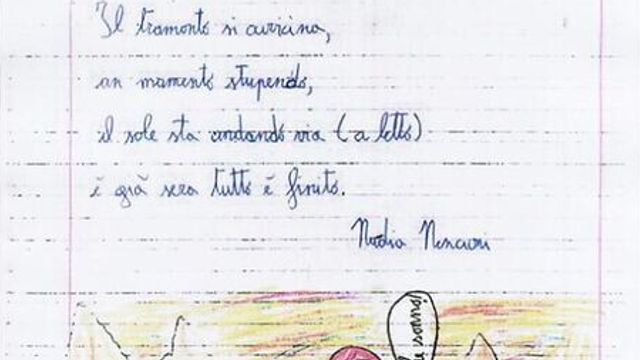 Il tramonto si avvicina,
un momento stupendo,
il sole sta andando via (a letto)
è già sera tutto è finito.
Nadia Nencioni
sonno